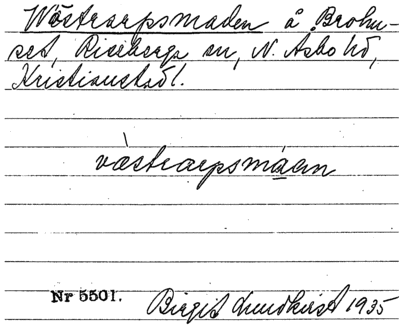 Wästrarpsmaden å Brohu-
set, Riseberga sn, N. Åsbo hd,
Kristianstad l.
västrarpsmáen
Nr 5501. Birgit Lundkvist 1935